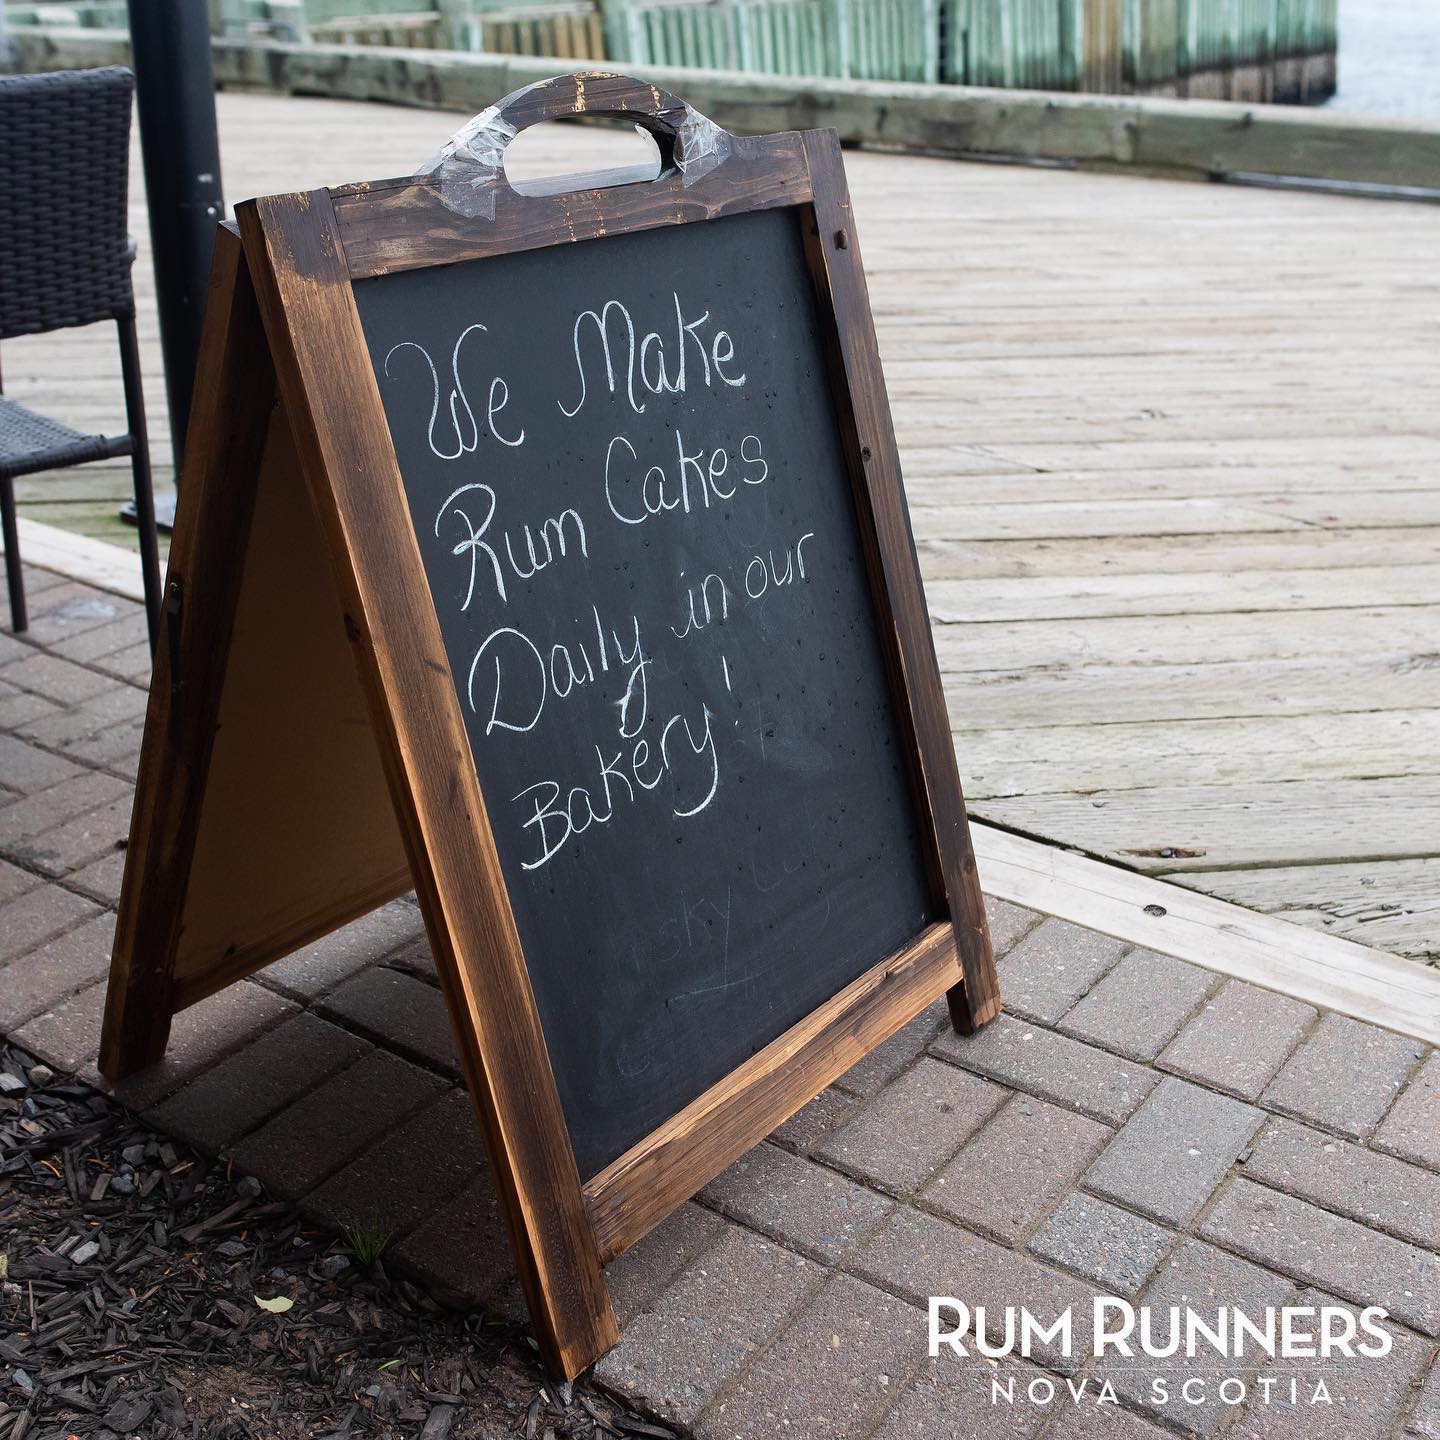 We Make
Rum Cakes
Daily in our
Bakery!
RUM RUNNERS
NOVA SCOTIA